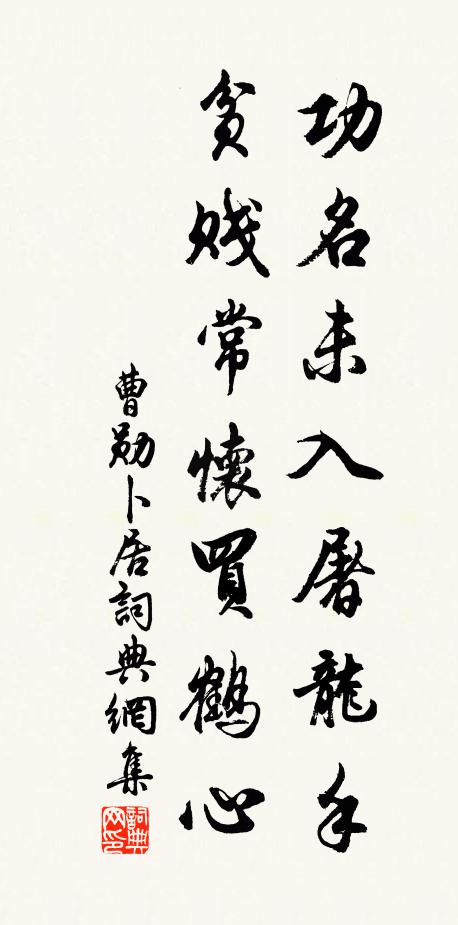 功名未入屠龍手
貧賤常懷買鶴心
曹勛卜居詞典網集
詞典網印